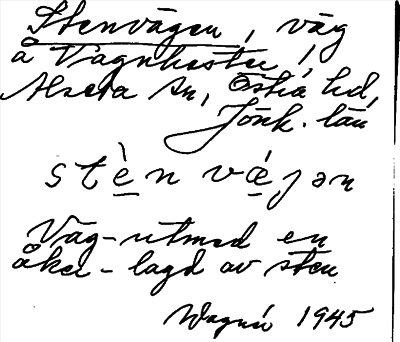 Stenvägen, väg
å Vagnhester,
Alseda sn, Östra hd,
Jönk. län
stèn vǽjən
Väg utmed en
åker - lagd av sten
1945